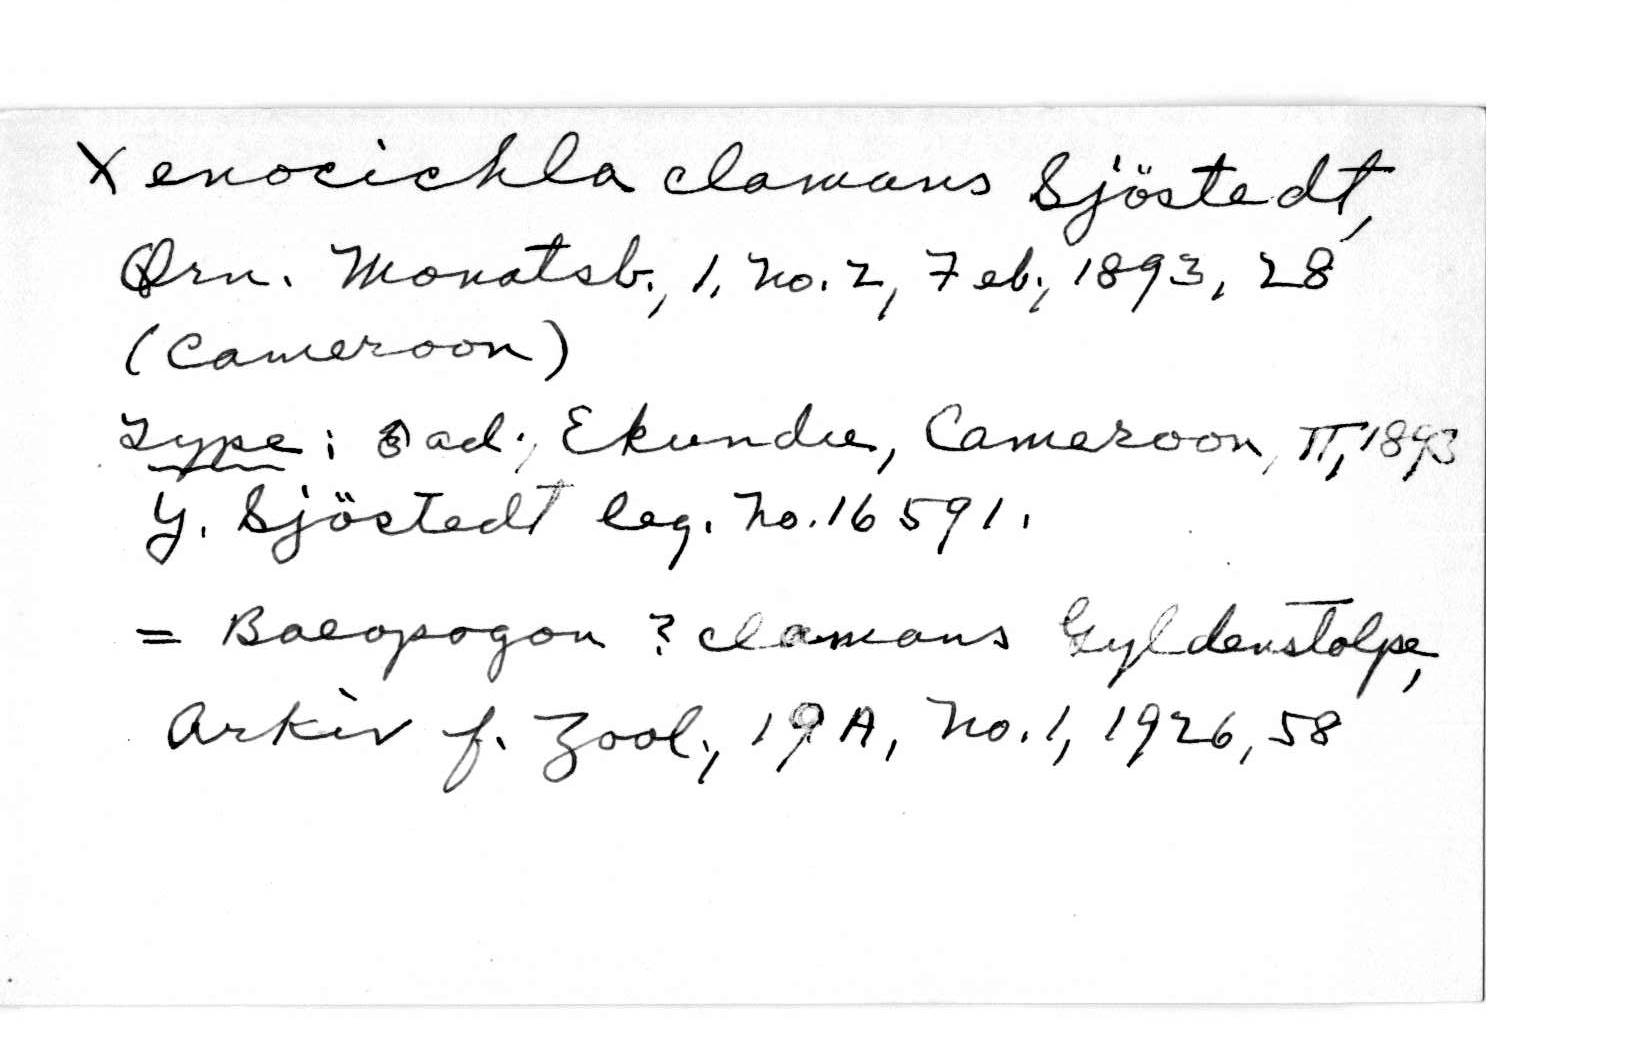 Xenocichla clamans Sjöstedt,
Orn. Monatsb., 1, no. 2, Feb., 1893, 28
(Cameroon)
Type: ad., Ekundu, Cameroon, II, 1893
Y. Sjöstedt leg. no. 16591.
= Baeopogon ? clamans Gyldenstolpe,
Arkiv f. Zool., 19A, no. 1, 1926, 58